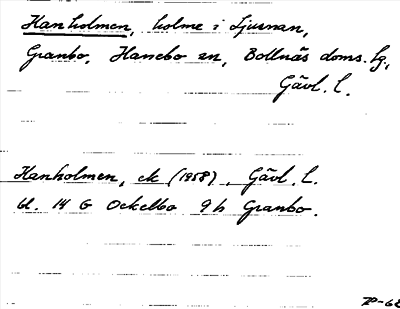 Hanholmen, holme i Ljusnan,
Granbo, Hanebo sn, Bollnäs doms. sg.,
Gävl. l.
Hanholmen, ek (1958), Gävl. l.
bl. 14 G Ockelbo 9 h Granbo.